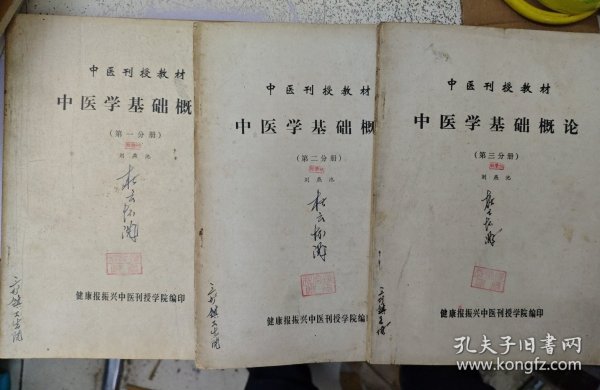 中医刊授教材
中医学基础概
（第一分册）
刘燕池
健康报振兴中医刊授学院编印
中医刊授教材
中医学基础概
（第二分册）
刘燕池
健康报振兴中医刊授学院编印
中医刊授教材
中医学基础概论
（第三分册）
刘燕池
健康报振兴中医刊授学院编印
孔夫子旧书网
www.kongfz.com